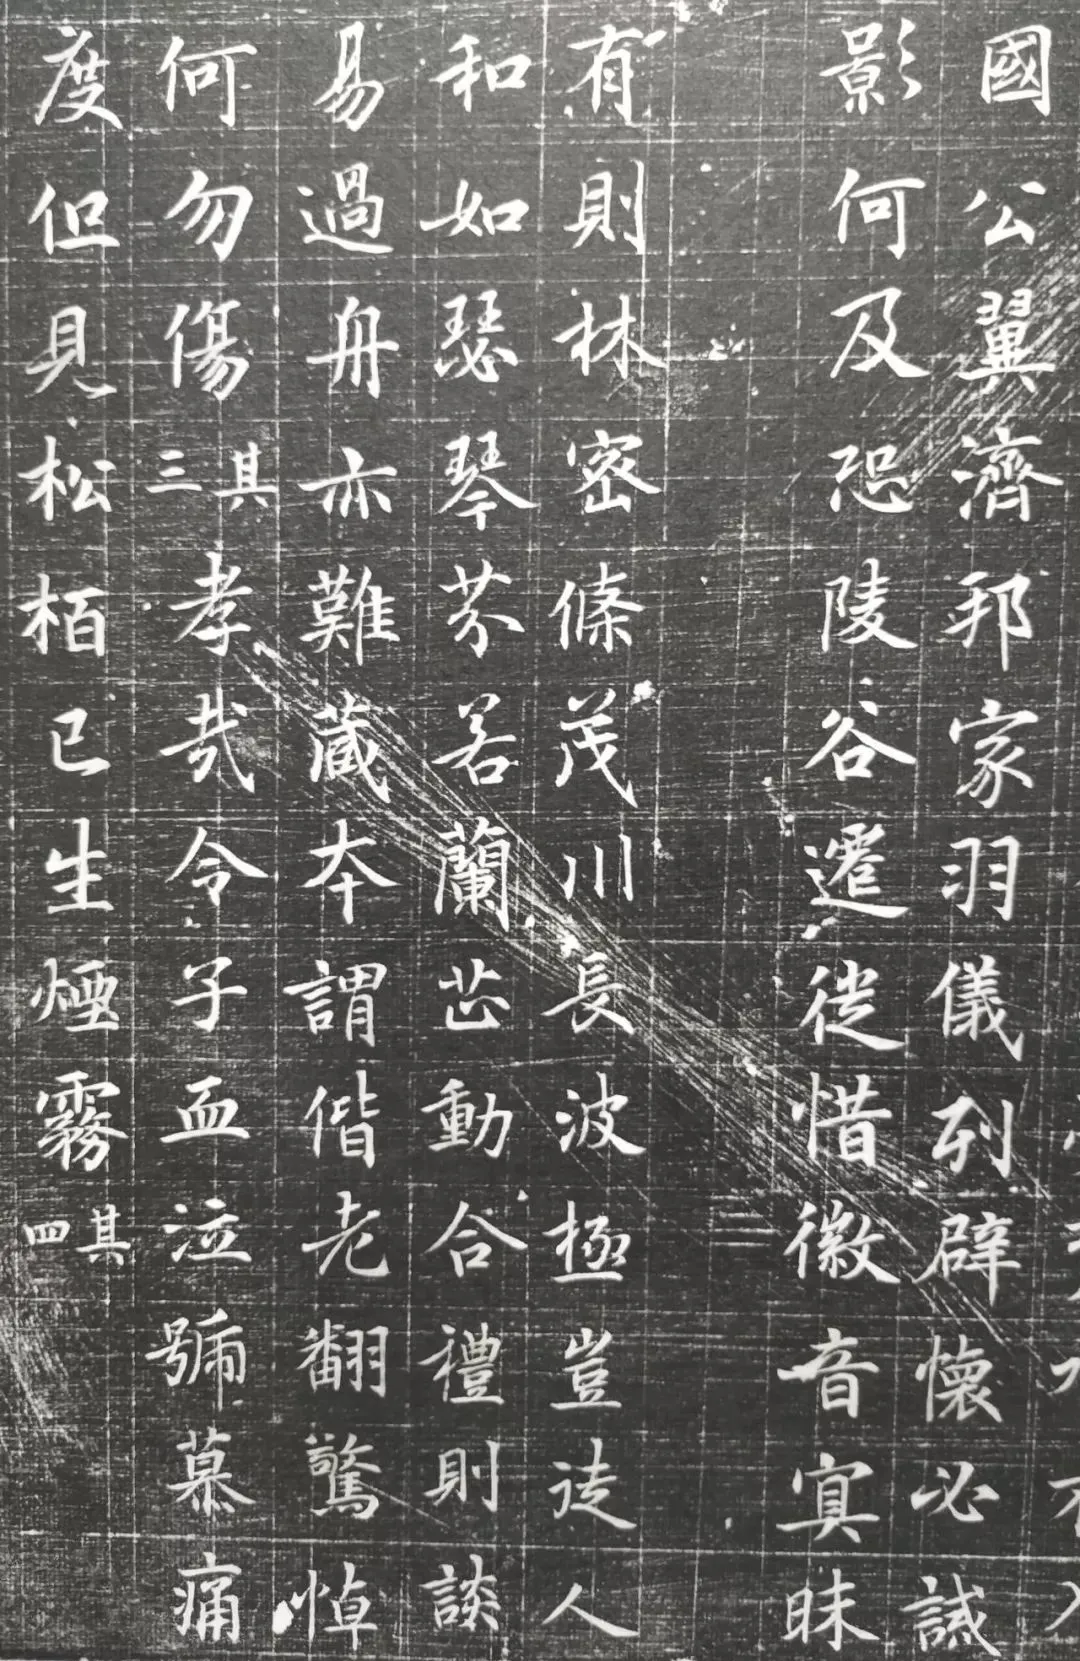 國公翼濟邦家羽儀列辟懷必誠
影何及恐陵谷遷徙惜徽音寘昧
有則林密條茂川長波極豈徒人
和如瑟琴芬若蘭芷動合禮則談
易過舟亦難藏夲謂偕老翻驚悼
何勿傷其三孝哉令子血泣號慕痛
度但見松栢已生煙霧其四